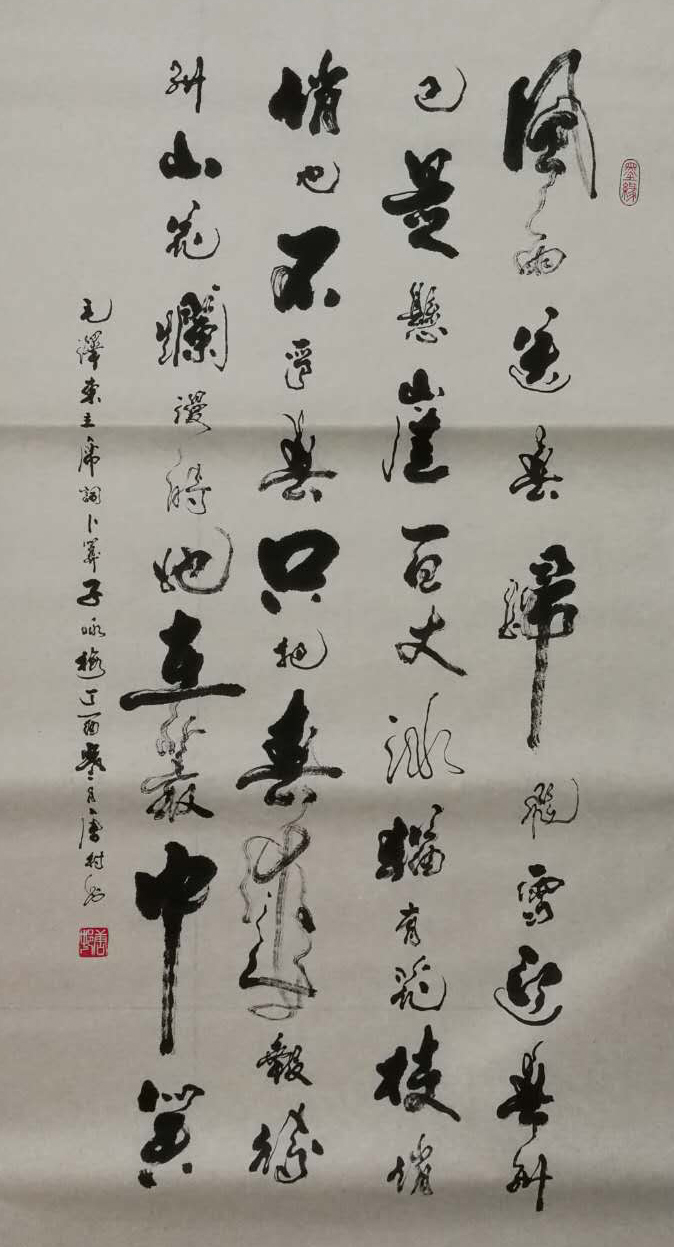 墨緣
風雨送春歸飛雪迎春到
已是懸崖百丈冰猶有花枝俏
俏也不爭春只把春來報待
到山花爛漫時她在叢中笑
毛澤東主席詞卜算子咏梅丁酉月唐村